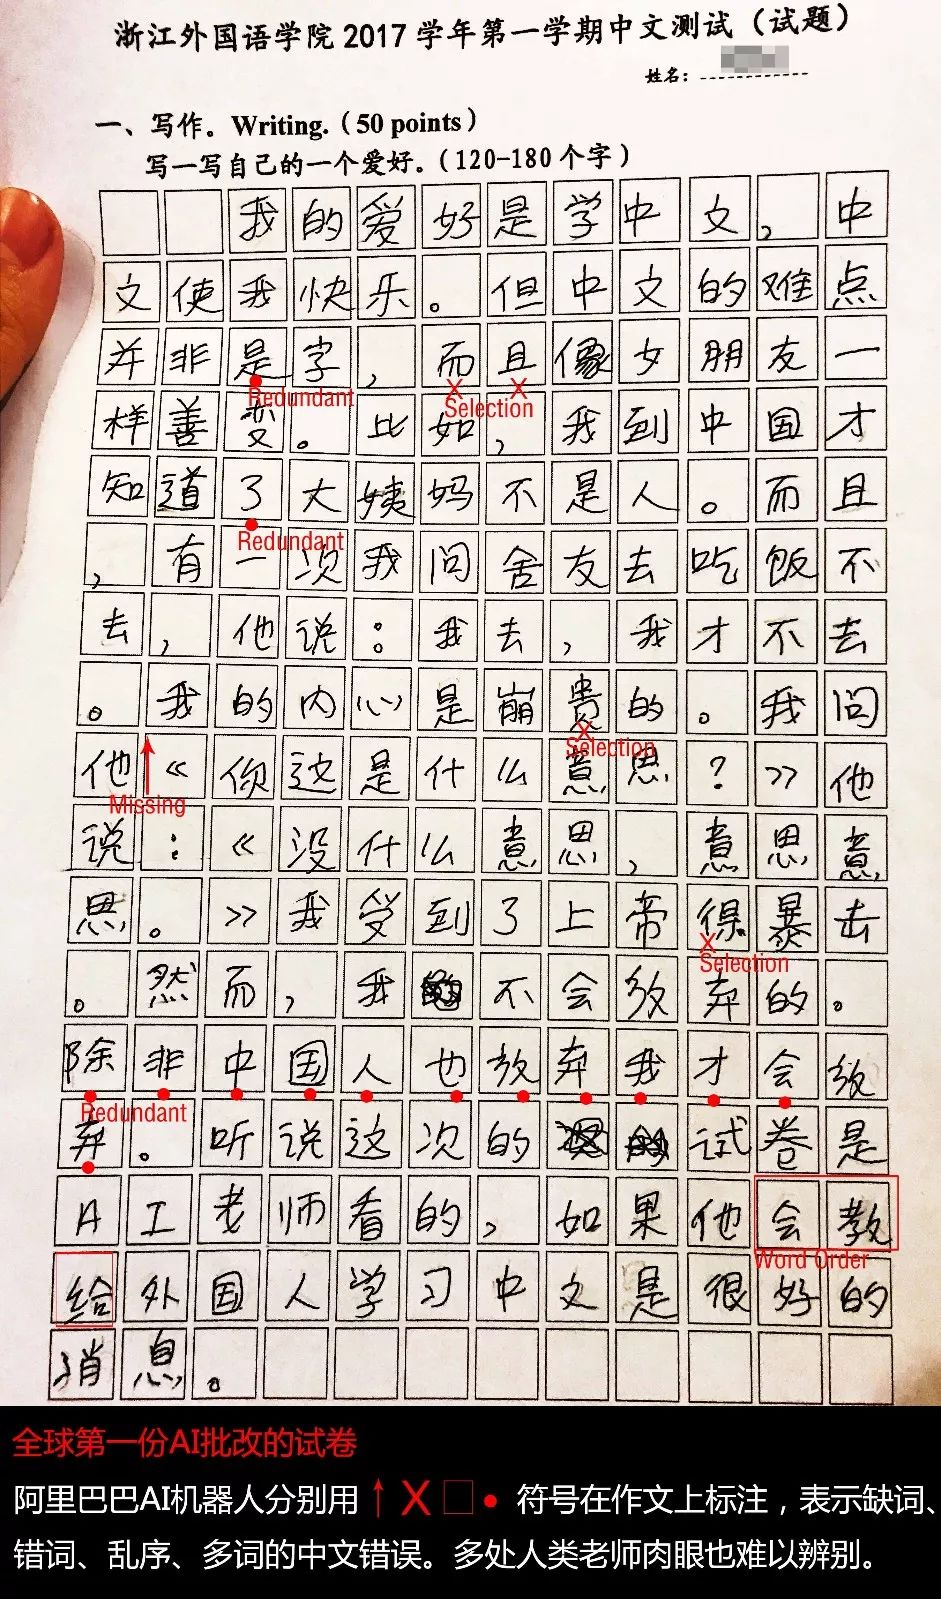 浙江外国语学院2017学年第一学期中文测试（试题）
姓名：
一、写作。Writing.（50 points）
写一写自己的一个爱好。（120-180个字）
我的爱好是学中文，中
文使我快乐。但中文的难点
并非是字，而且像女朋友一
Redundant Selection
样善变。比如，我到中国才
知道了大姨妈不是人。而且
Redundant
，有一次我问舍友去吃饭不
去，他说：我去，我才不去
。我的内心是崩贵的。我问
Selection
他《你这是什么意思？》他
Missing
说：《没什么意思，意思意
思。》我受到了上帝得暴击
Selection
。然而，我不会放弃的。
除非中国人也放弃我才会放
Redundant
弃。听说这次的试卷是
AI老师看的，如果他会教
Word Order
给外国人学习中文是很好的
消息。
全球第一份AI批改的试卷
阿里巴巴AI机器人分别用↑X□●符号在作文上标注，表示缺词、
错词、乱序、多词的中文错误。多处人类老师肉眼也难以辨别。